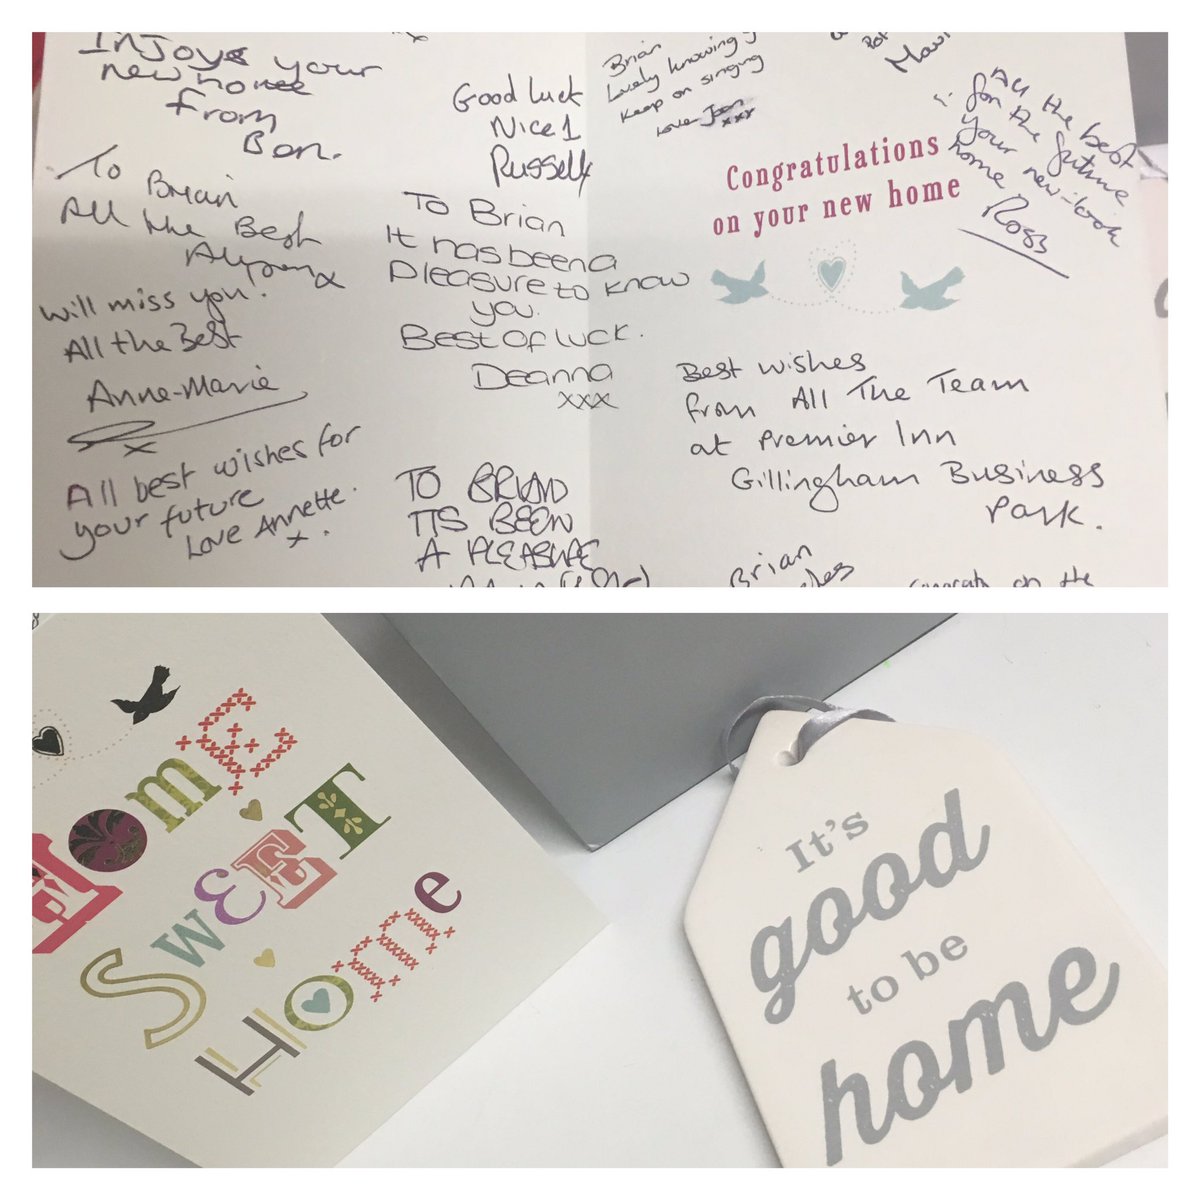 Injoys your
new home
from
Bon.
To
Brian
All the Best
Alyson x
will miss you!
All the Best
Anne-Marie
x
All best wishes for
your future
Love Annette.
x.
Good luck
Nice 1
Russell
To Brian
It has been a
Pleasure to know
you.
Best of luck.
Deanna
xxx
TO BRIAN
ITS BEEN
A PLEASURE
Brian
Lovely knowing
Keep on singing
Love Jean
xxx
All the best
for the future
in
your new-look
home
Ross
Congratulations
on your new home
Best wishes
from All The Team
at Premier Inn
Gillingham Business
Park.
Brian
Congrats on the
Home
Sweet
Home
It's
good
to be
home